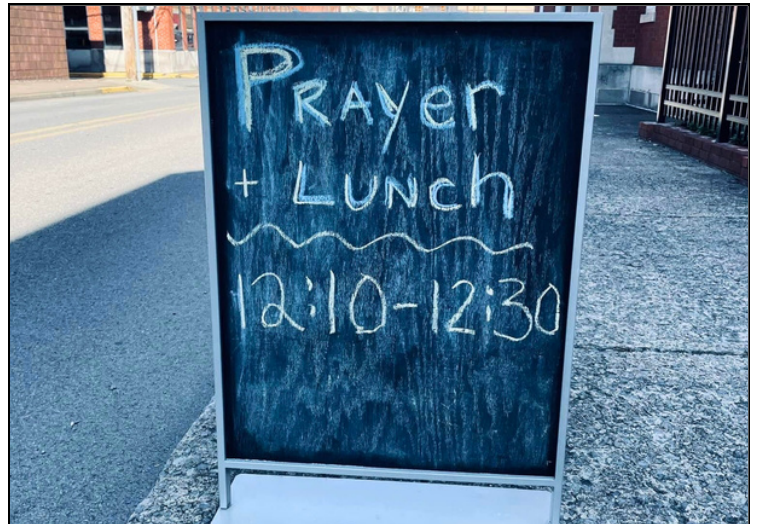 PRAyer
+ LUNch
12:10-12:30